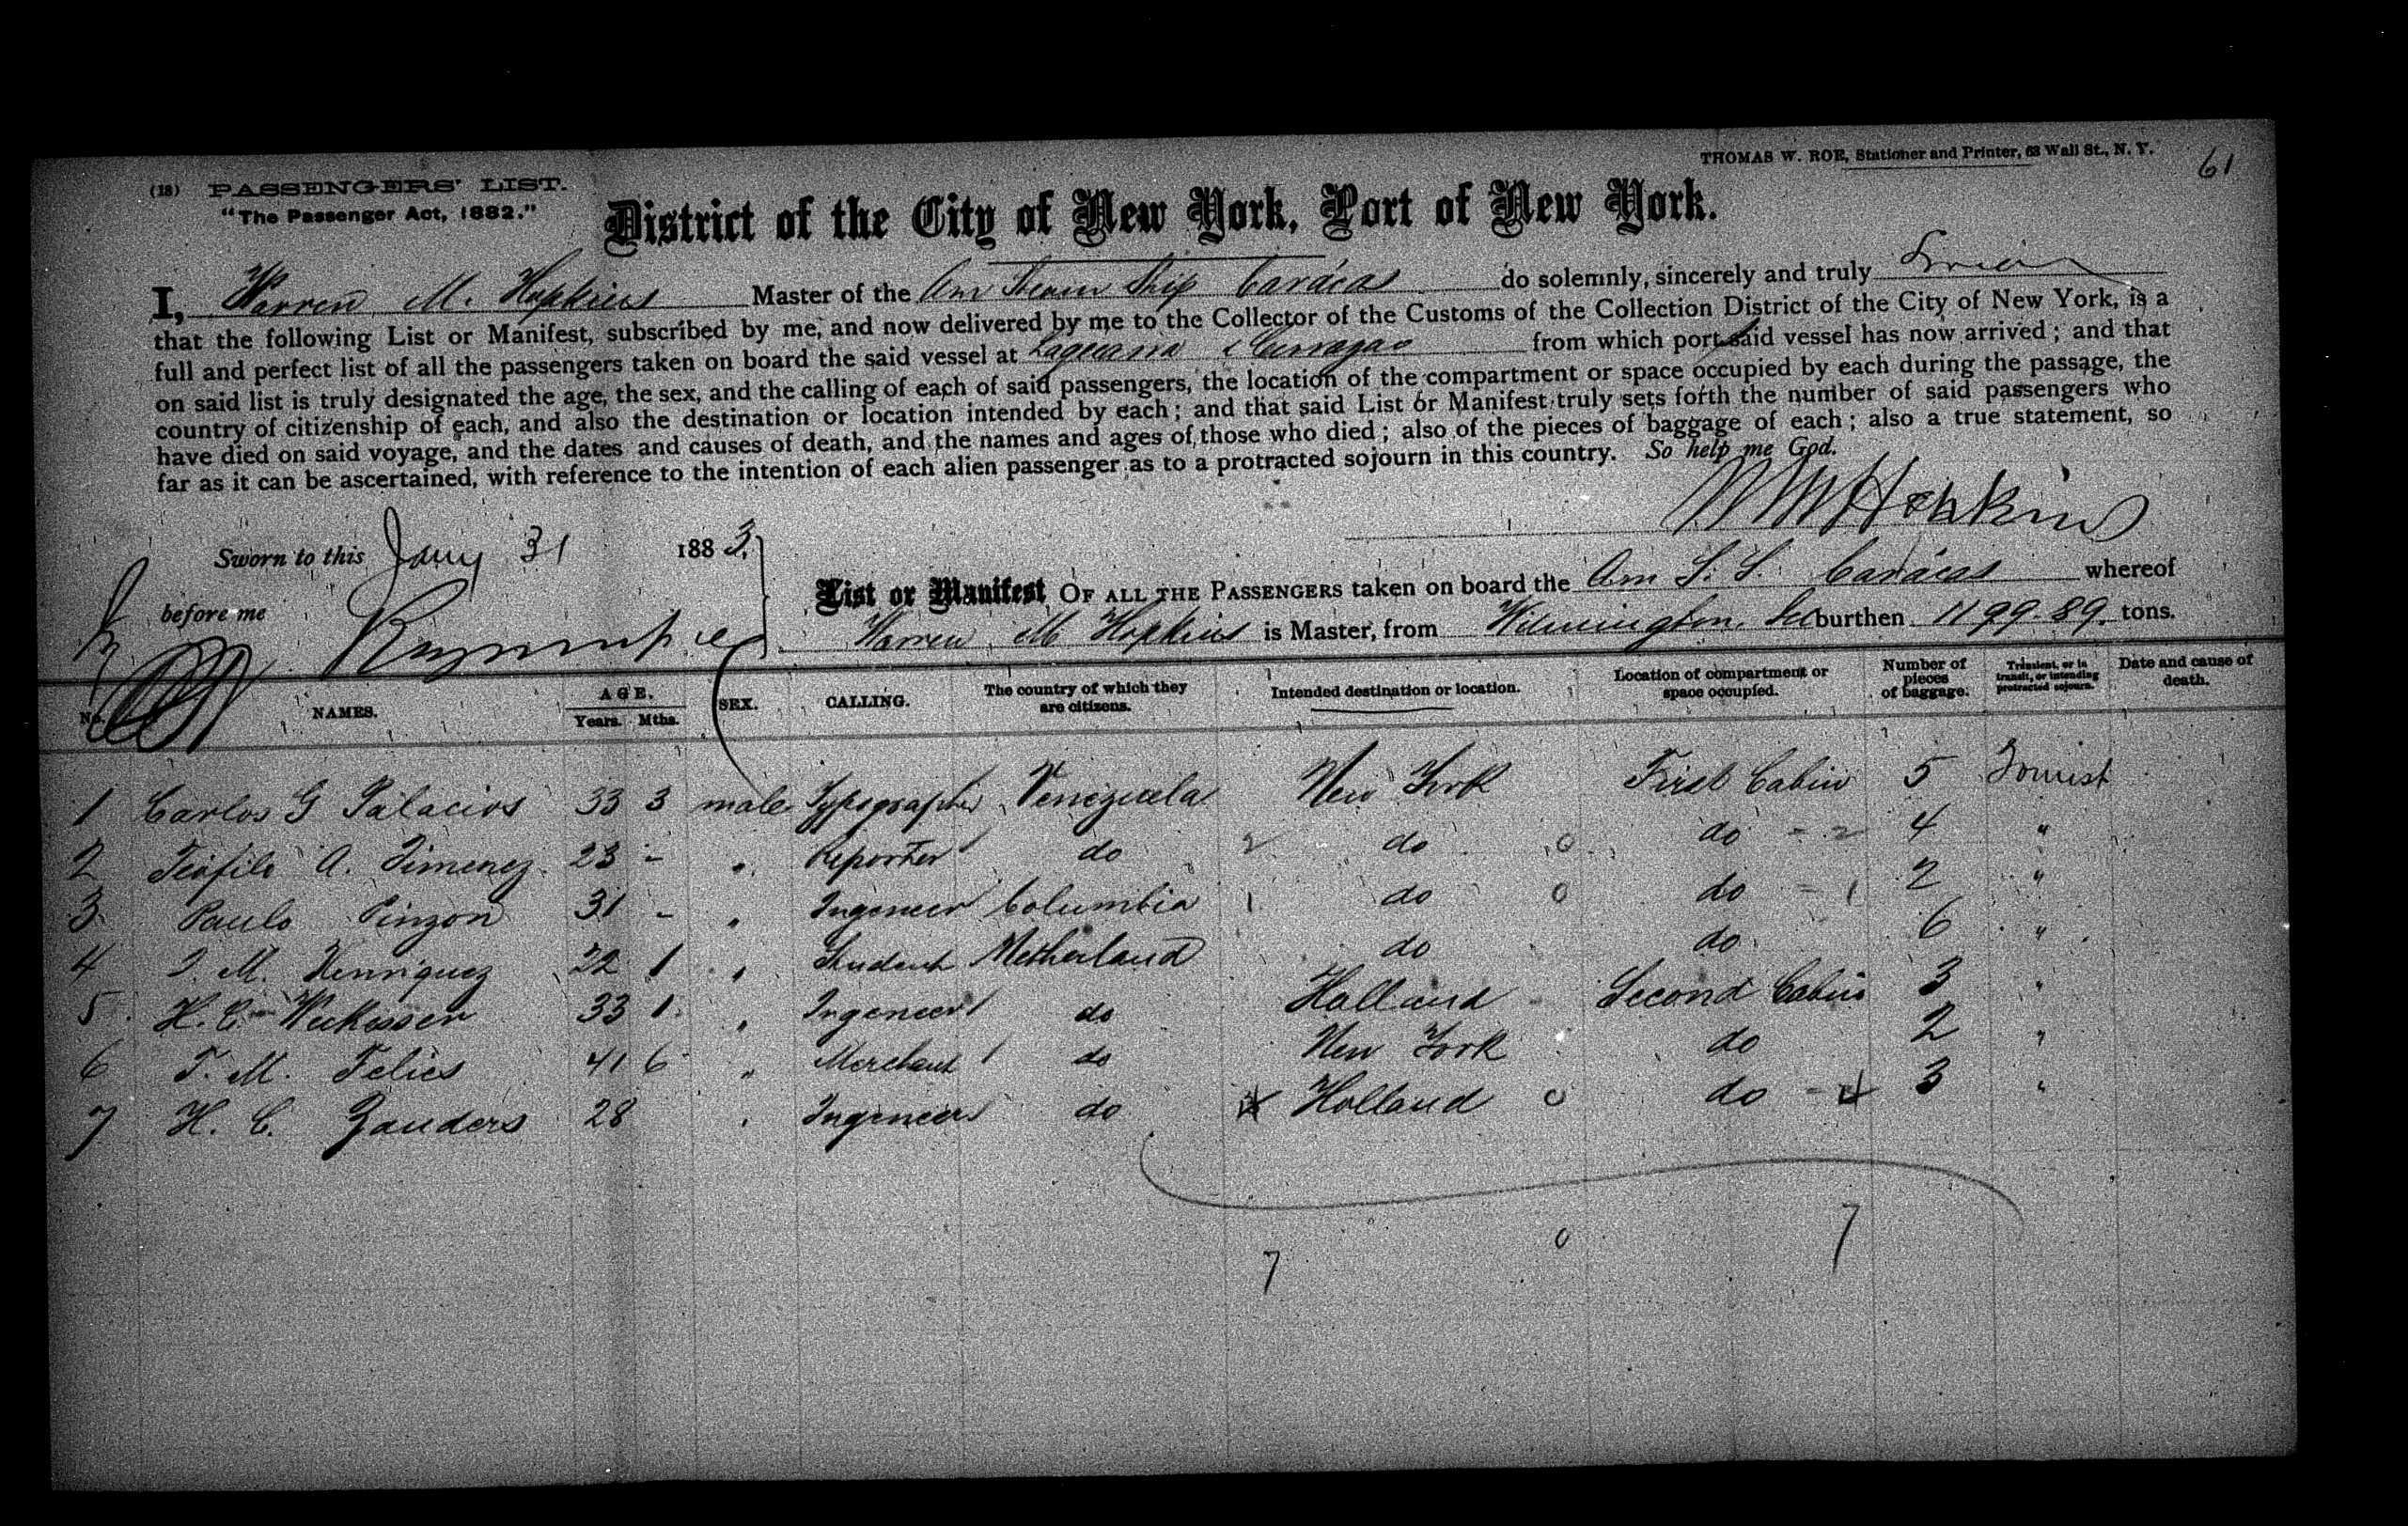 THOMAS W. ROE, Stationer and Printer, 63 Wall St., N. Y. 61
(18) PASSENGERS' LIST.
"The Passenger Act, 1882."
District of the City of New York, Port of New York.
I, Warren M. Hopkins Master of the Am Steam Ship Carácas do solemnly, sincerely and truly
that the following List or Manifest, subscribed by me, and now delivered by me to the Collector of the Customs of the Collection District of the City of New York, is a
full and perfect list of all the passengers taken on board the said vessel at Laguaira & Curraçao from which port said vessel has now arrived; and that
on said list is truly designated the age, the sex, and the calling of each of said passengers, the location of the compartment or space occupied by each during the passage, the
country of citizenship of each, and also the destination or location intended by each; and that said List or Manifest truly sets forth the number of said passengers who
have died on said voyage, and the dates and causes of death, and the names and ages of those who died; also of the pieces of baggage of each; also a true statement, so
far as it can be ascertained, with reference to the intention of each alien passenger as to a protracted sojourn in this country. So help me God.
WM Hopkins
Sworn to this Jany 31 1883.
before me
List or Manifest OF ALL THE PASSENGERS taken on board the Am S. S. Carácas whereof
Warren M Hopkins is Master, from Wilmington, burthen 1199.89. tons.
No. NAMES. AGE. Years. Mths. SEX. CALLING. The country of which they are citizens. Intended destination or location. Location of compartment or space occupied. Number of pieces of baggage. Transient, or in transit, or intending protracted sojourn. Date and cause of death.
1 Carlos G Palacios 33 3 male Typographer Venezuela New York First Cabin 5 Tourist
2 Teófilo A. Jimenez 23 - " Reporter do 2 do 0 do - 2 4 "
3 Paulo Pinzon 31 - " Ingeneer Columbia 1 do 0 do - 1 2 "
4 J. M. Henriquez 22 1 " Student Netherland do do 6 "
5 H. C. Weckesser 33 1 " Ingeneer do Holland Second Cabin 3 "
6 T. M. Felics 41 6 " Merchant do New York do 2 "
7 H. C. Zauders 28 " Ingeneer do 4 Holland 0 do - 4 3 "
7 0 7